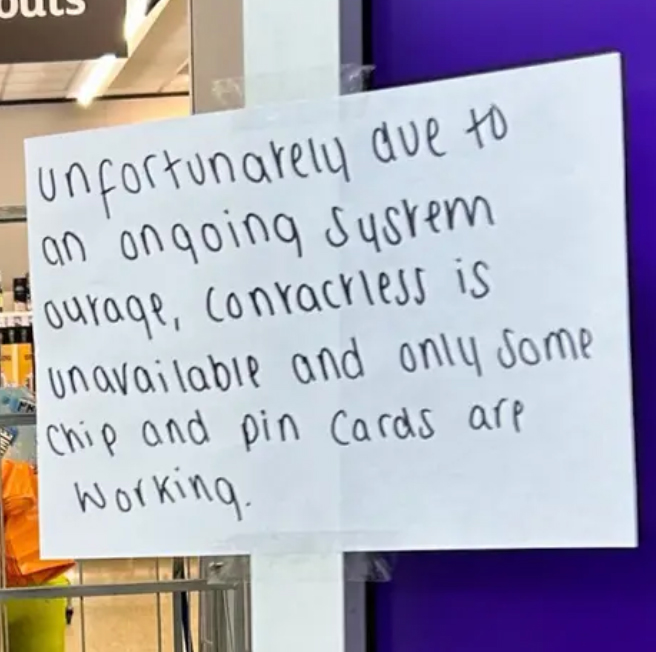 outs
unfortunately due to
an ongoing system
outage, contactless is
unavailable and only some
chip and pin cards are
working.